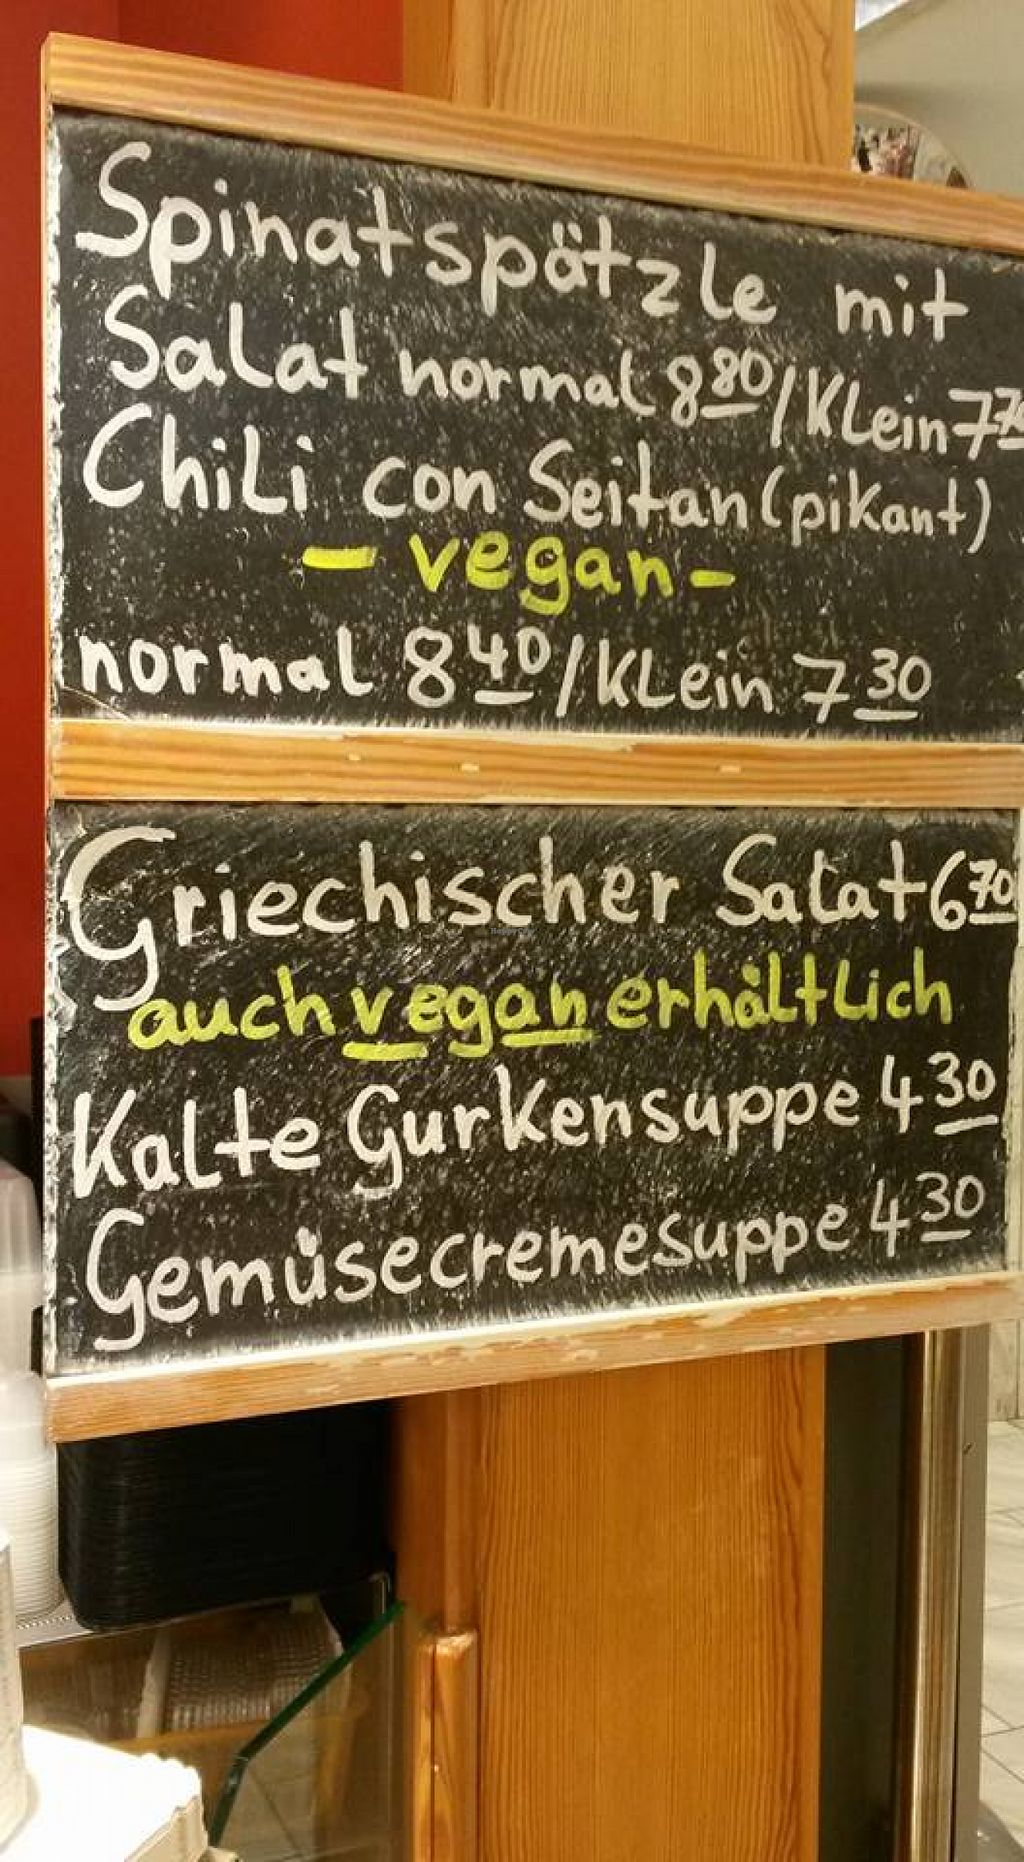 Spinatspätzle mit
Salat normal 8 80 / Klein 7 70
Chili con Seitan (pikant)
- vegan -
normal 8 40 / Klein 7 30
Griechischer Salat 6 70
auch vegan erhältlich
Kalte Gurkensuppe 4 30
Gemüsecremesuppe 4 30